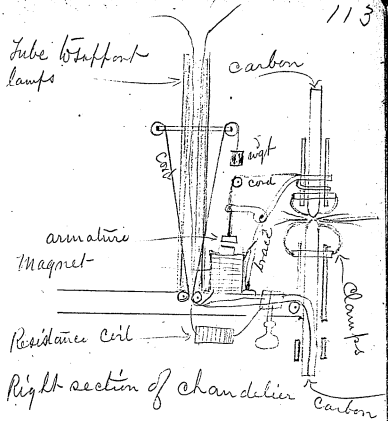 113
Tube to support
lamps
carbon
wgt
Cord
cord
armature
Magnet
brace
Clamps
Resistance coil
Right section of chandelier
Carbon